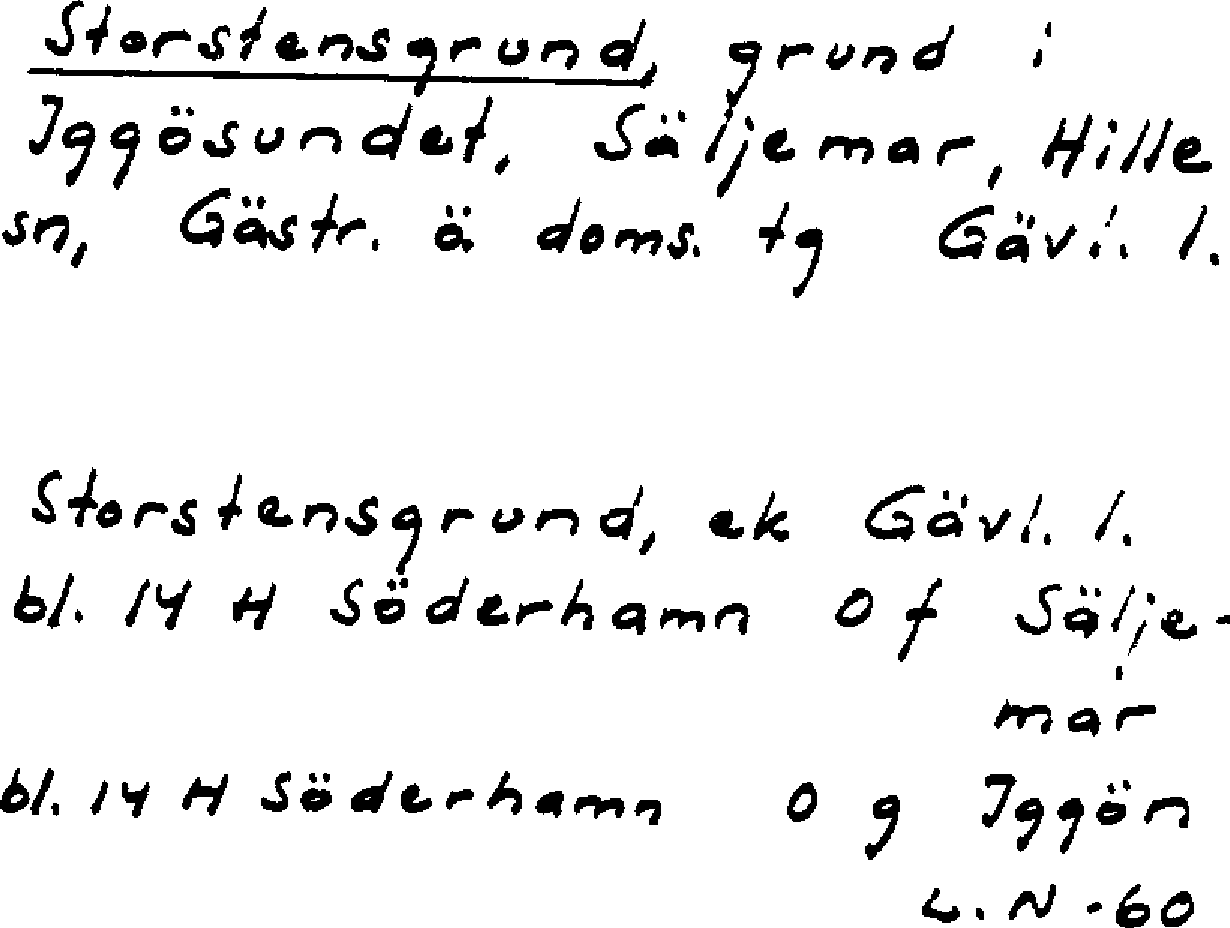 Storstensgrund, grund i
Iggösundet, Säljemar, Hille
sn, Gästr. ö. doms. tg Gävl. l.
Storstensgrund, ek Gävl. l.
bl. 14 H Söderhamn 0 f Sälje-
mar
bl. 14 H Söderhamn 0 g Iggön
L. N -60